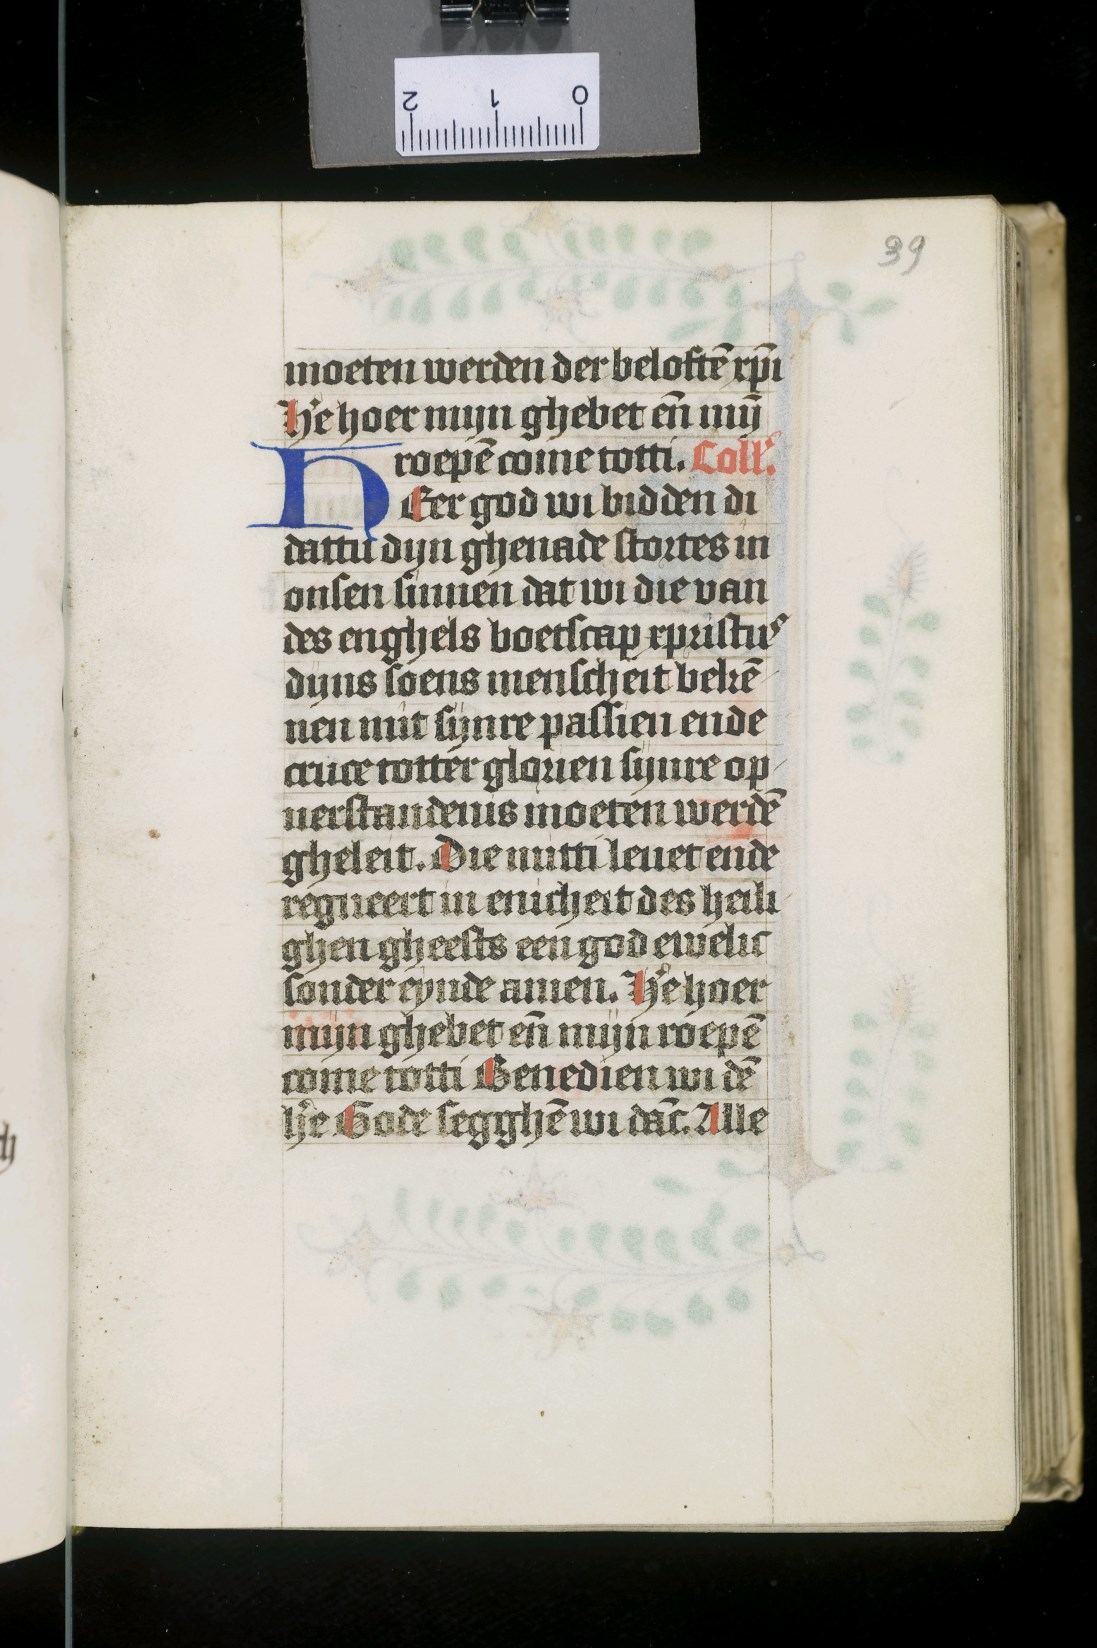 2 1 0
39
moeten werden der beloftē xp̄i
H̾e hoer mijn ghebet en̄ mij̄
roepē come totti. Coll̾.
HEer god wi bidden di
dattu dijn ghenade stortes in
onsen sinnen dat wi die van
des enghels boetscap xpristus
dijns soens menscheit bekē
nen mit sijnre passien ende
cruce totter glorien sijnre op
uerstandenis moeten werdē
gheleit. Die mitti leuet ende
regneert in enicheit des heili
ghen gheests een god ewelic
sonder eynde amen. H̾e hoer
mijn ghebet en̄ mijn roepē
come totti Benedien wi dē
h̾e Gode segghē wi dāc. Alle